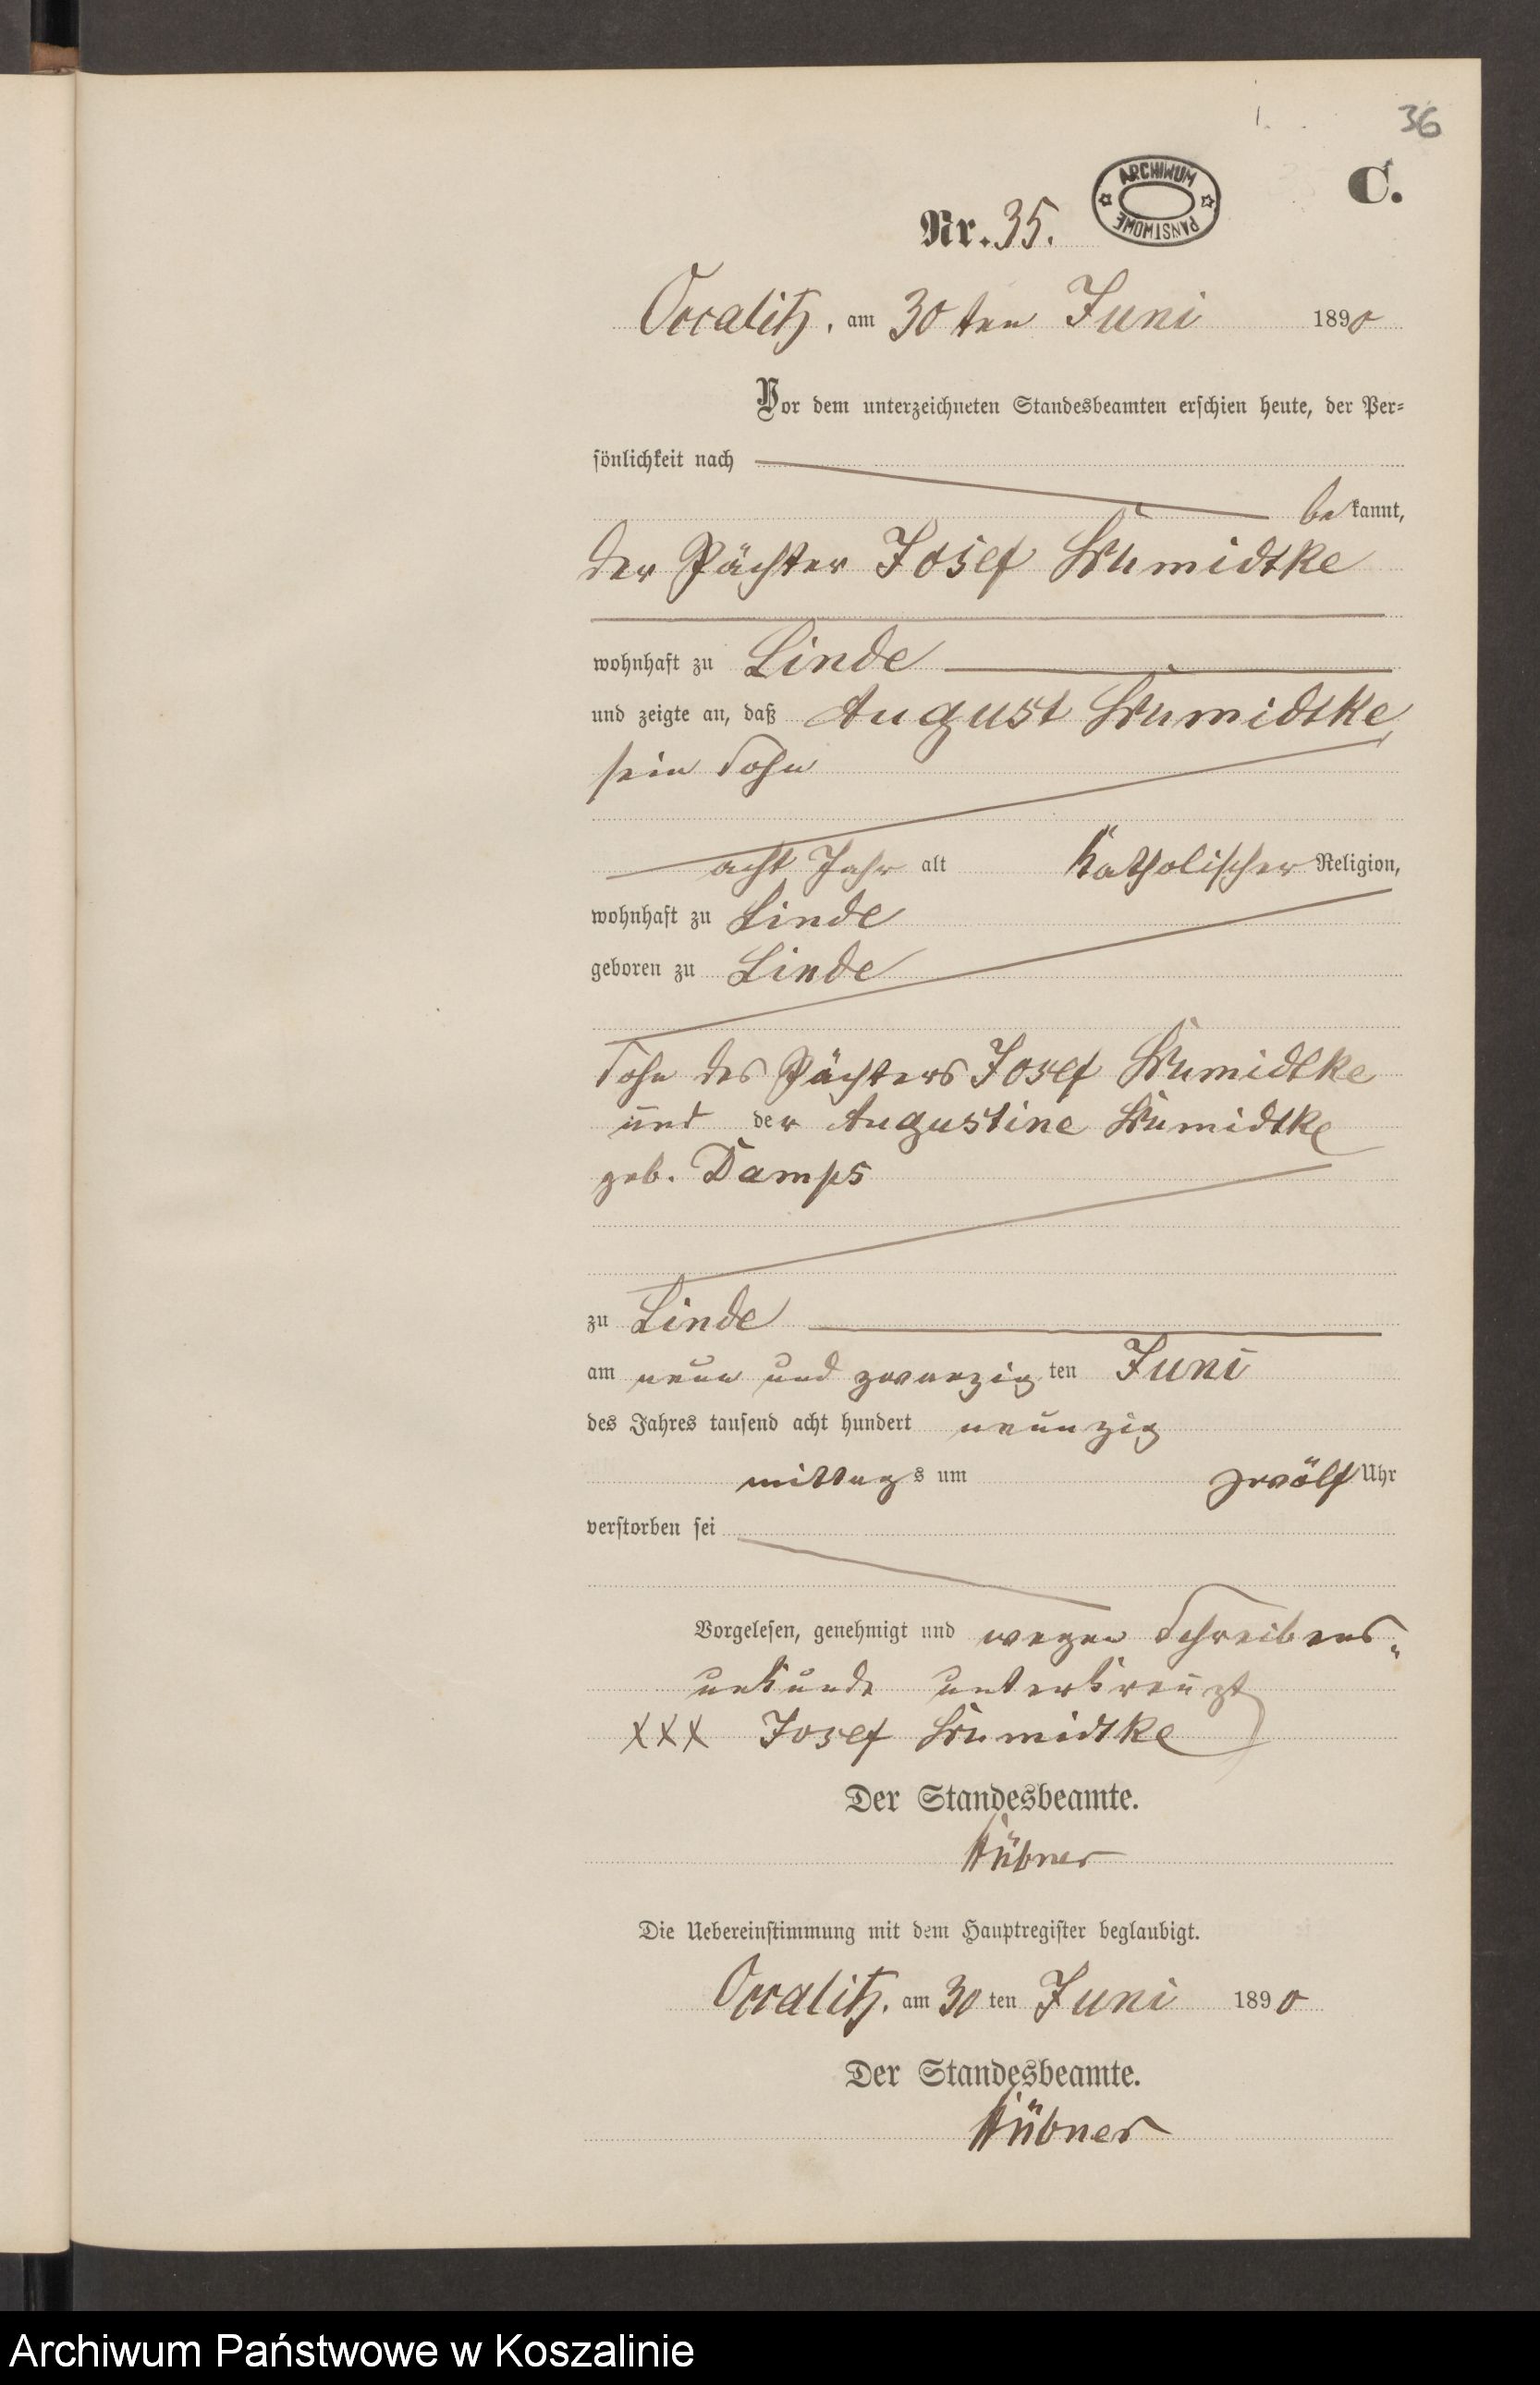 36
C.
ARCHIWUM PAŃSTWOWE
Nr. 35.
Occalitz, am 30 ten Juni 1890
Vor dem unterzeichneten Standesbeamten erschien heute, der Per=
sönlichkeit nach
be kannt,
der Pächter Josef
wohnhaft zu Linde
und zeigte an, daß August
sein Sohn
acht Jahr alt Katholischer Religion,
wohnhaft zu Linde
geboren zu Linde
Sohn des Pächters Josef
und der Augustine
geb. Damps
zu Linde
am neun und zwanzig ten Juni
des Jahres tausend acht hundert neunzig
mittag s um zwölf Uhr
verstorben sei
Vorgelesen, genehmigt und wegen Schreibens-
unkunde unterkreuzt
XXX Josef
Der Standesbeamte.
Hübner
Die Uebereinstimmung mit dem Hauptregister beglaubigt.
Occalitz, am 30 ten Juni 1890
Der Standesbeamte.
Hübner
Archiwum Państwowe w Koszalinie